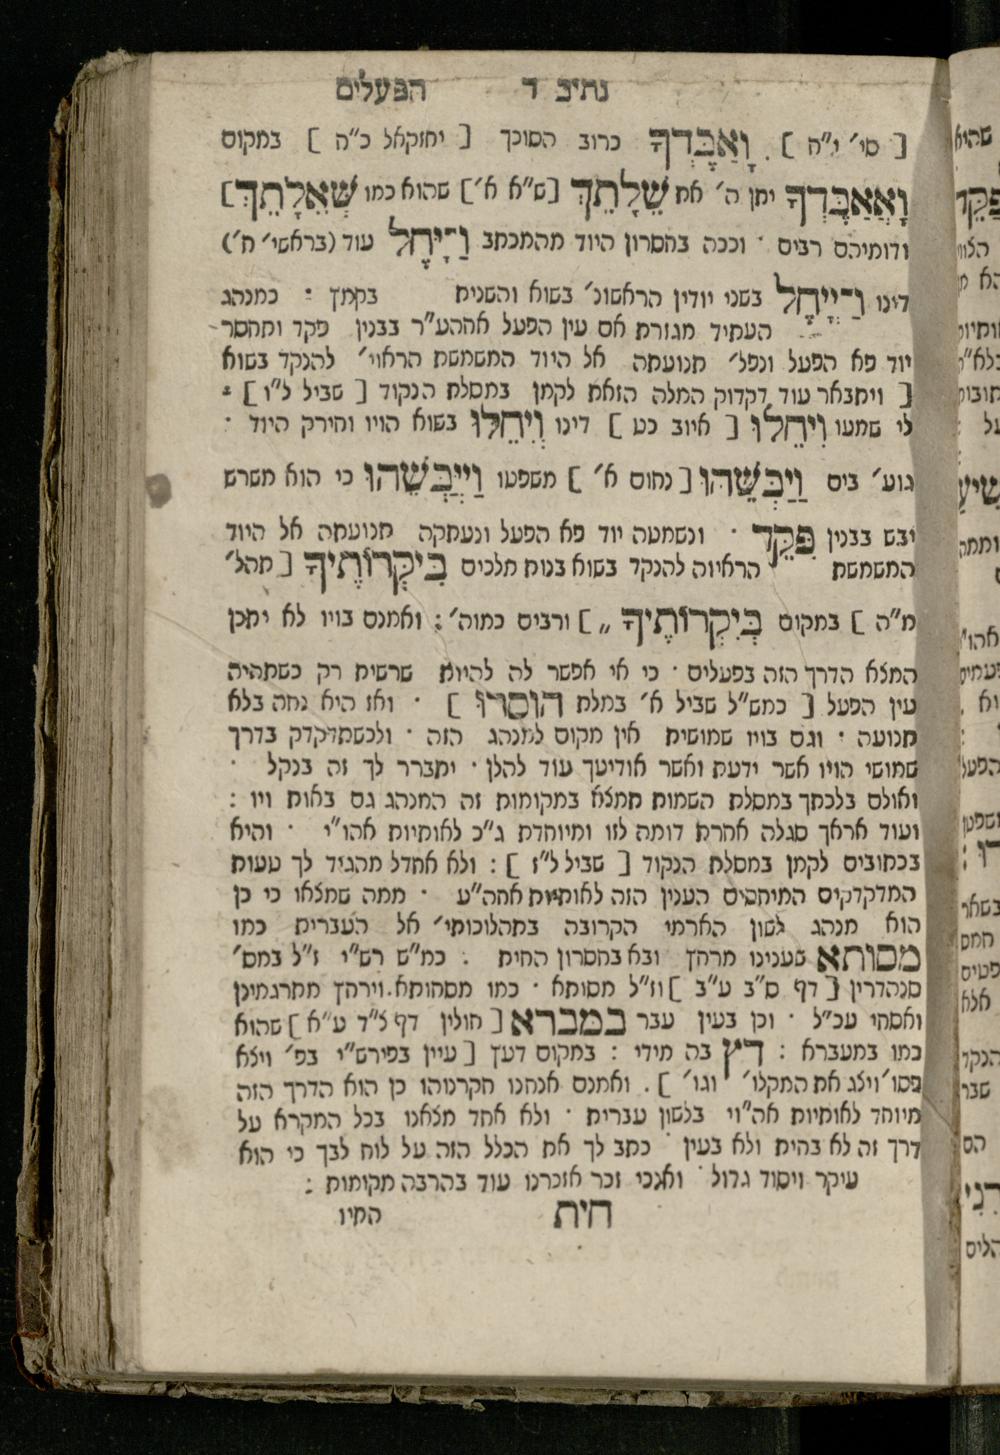 נתיב ד הפעלים
[ סי׳ י״ח ] . וָאַבֶּדְךָ כרוב הסוכך [ יחזקאל כ״ח ] במקום
וָאֲאַבֶּדְךָ יתן ה׳ את שֵׁלָתֵךְ [ש״א א׳] שהוא כמו שְׁאֵלָתֵךְ]
ודומיהם רבים · וככה בחסרון היוד מהמכתב וַיָּחֶל עוד (בראשי׳ ח׳)
דינו וַיְיָחֶל בשני יודין הראשונ׳ בשוא והשנית בקמץ : כמנהג
העתיד מגזרת אם עין הפעל אההע״ר בבנין פקד ותחסר
יוד פא הפעל ונפל׳ תנועתה אל היוד המשמשת הראוי׳ להנקד בשוא
[ ויתבאר עוד דקדוק המלה הזאת לקמן במסלת הנקוד [ שביל ל״ו ] :
לי שמעו וְיִחֵלּוּ [ איוב כט ] דינו וְיִחֵלּוּ בשוא הויו וחירק היוד ·
גוע׳ בים וַיַּבְּשֵׁהוּ [ נחום א׳ ] משפטו וַיְיַבְּשֵׁהוּ כי הוא משרש
יבש בבנין פִּקֵּד · ונשמטה יוד פא הפעל ונעתקה תנועתה אל היוד
המשמשת הראויה להנקד בשוא בנות מלכים בִּיקְּרוֹתֶיךָ [ תהל׳
מ״ה ] במקום בְּיִקְרוֹתֶיךָ „ ] ורבים כמוה׳ : ואמנם בויו לא יתכן
המצא הדרך הזה בפעלים · כי אי אפשר לה להיות שרשית רק כשתהיה
עין הפעל [ כמש״ל שביל א׳ במלת הוסרו ] · ואז היא נחה בלא
תנועה · וגם בויו שמושית אין מקום למנהג הזה · ולכשתדקדק בדרך
שמושי הויו אשר ידעת ואשר אודיעך עוד להלן · יתברר לך זה בנקל ·
ואולם בלכתך במסלת השמות תמצא במקומות זה המנהג גם באות ויו :
ועוד אראך סגלה אחרת דומה לזו ומיוחדת ג״כ לאותיות אהו״י · והיא
בכתובים לקמן במסלת הנקוד [ שביל ל״ז ] : ולא אחדל מהגיד לך טעות
המדקדקים המיחסים הענין הזה לאותיות אחה״ע · ממה שמצאו כי כן
הוא מנהג לשון הארמי הקרובה בתהלוכותי׳ אל העברית כמו
מסותא שענינו מרחץ ובא בחסרון החית . כמ״ש רש״י ז״ל במס׳
סנהדרין [ דף ס״ב ע״ב ] וז״ל מסותא · כמו מסחותא . וירחץ מתרגמינן
ואסחי עכ״ל · וכן בעין עבר במברא [ חולין דף צ״ד ע״א ] שהוא
כמו במעברא : דץ בה מידי : במקום דעץ [ עיין בפירש״י בפ׳ ויצא
פסו׳ ויצג את המקלו׳ וגו׳ ] . ואמנם אנחנו חקרנוהו כן הוא הדרך הזה
מיוחד לאותיות אה״וי בלשון עברית · ולא אחד מצאנו בכל המקרא על
דרך זה לא בחית ולא בעין · כתב לך את הכלל הזה על לוח לבך כי הוא
עיקר ויסוד גדול · ואנכי זכר אזכרנו עוד בהרבה מקומות :
חית התיו